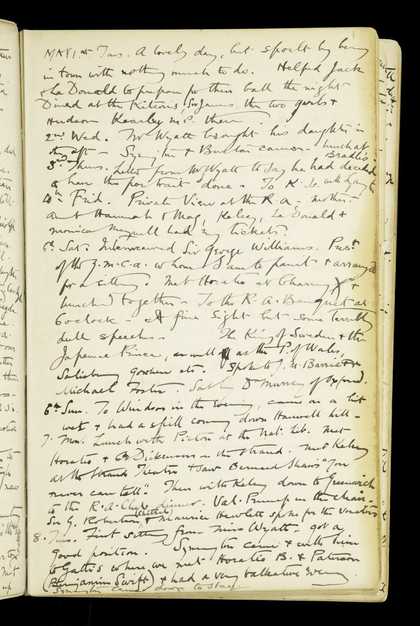 MAY 1st Tues. A lovely day, but spoilt by being
in town with nothing much to do. Helped Jack
& Le Donald to prepare for their ball the night
Dined at the Kitsons' Sir James the two girls &
Hudson Kearley M.P. there.
2nd Wed. Mr Wyatt brought his daughter in
the aft Symington & Burton came - lunch at
3rd Thurs. Letter from Mr Wyatt to say he had decided
to have the portrait done - To K.
4th Frid. Private View at the R A - Mother
Aunt Hannah & May, Kelsey, Le Donald &
Monica Meynell had my tickets.
5th Sat. Interviewed Sir George Williams. Pres
of the Y.M.C.A. whom I am to paint & arranged
for a sitting. Met Horatio at Charing X &
lunched together - To the R.A. Banquet at
6 o'clock - A fine sight but some terribly
dull speeches - The King of Sweden & the
Japanese Prince, as well as the P. of Wales,
Salisbury Goschen etc. Spoke to J. M. Barrie &
Michael Foster. Sat by D Murray of Oxford.
6th Sun. To Windsor in the evening, came on a bit
wet & had a spill coming down Hanwell hill -
7. Mon. Lunch with Pictor at the Nat: Lib. Met
Horatio & B Dickinson in the Strand. Met Kelsey
at the Strand Theatre & saw Bernard Shaw's You
never can tell. Then with Kelsey down to Greenwich
to the R-A-Club dinner. Val: Prinsep in the chair -
Sir G. Robertson, & Maurice Hewlett spoke for the visitors
8. Tues. First sitting from Miss Wyatt - got a
good position. Symington came & with him
to Gatti's where we met Horatio B. & Paterson
(Benjamin Swift) & had a very talkative evening
Symington came down to stay